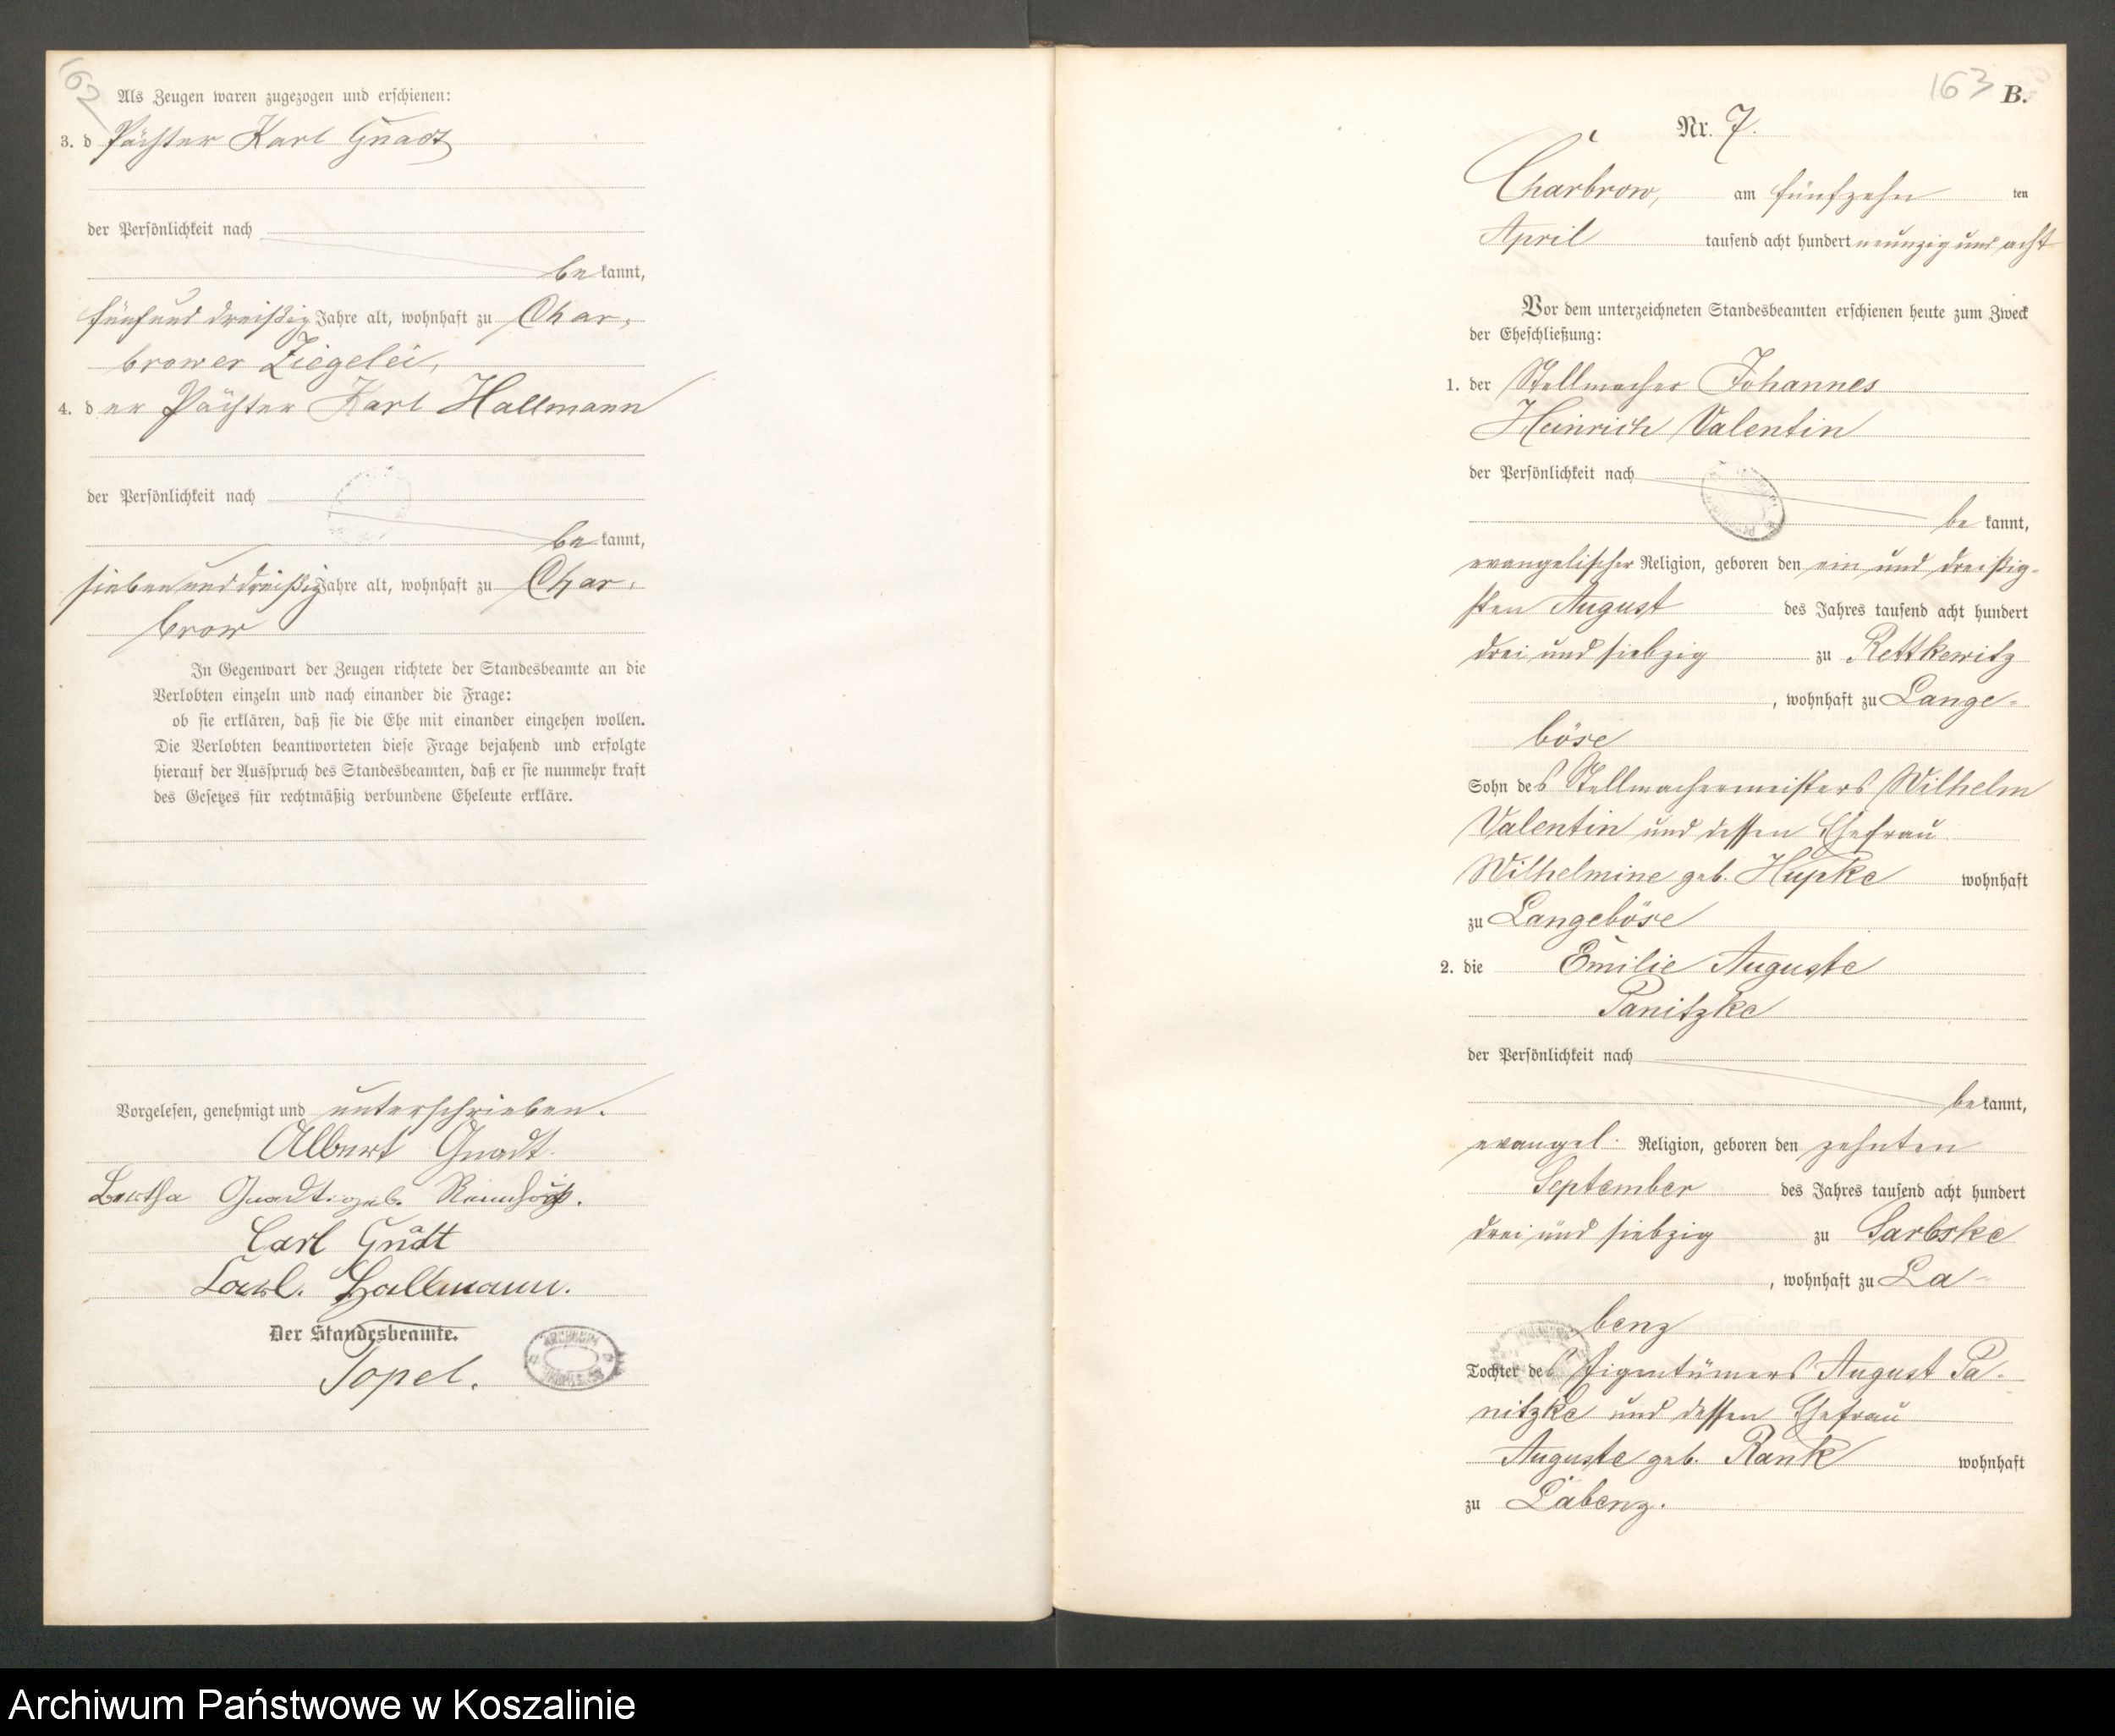 162
Als Zeugen waren zugezogen und erschienen:
3. d Pächter Karl Gnadt
der Persönlichkeit nach
be kannt,
fünfund dreißig Jahre alt, wohnhaft zu Char-
brower Ziegelei,
4. d er Pächter Karl Hallmann
der Persönlichkeit nach
be kannt,
siebenunddreißig Jahre alt, wohnhaft zu Char-
brow
In Gegenwart der Zeugen richtete der Standesbeamte an die
Verlobten einzeln und nach einander die Frage:
ob sie erklären, daß sie die Ehe mit einander eingehen wollen.
Die Verlobten beantworteten diese Frage bejahend und erfolgte
hierauf der Ausspruch des Standesbeamten, daß er sie nunmehr kraft
des Gesetzes für rechtmäßig verbundene Eheleute erkläre.
Vorgelesen, genehmigt und unterschrieben.
Albert Gnadt.
Bertha Gnadt geb.
Carl
Carl. Hallmann.
Der Standesbeamte.
Topel.
163 B.
Nr. 7.
Charbrow, am fünfzehn ten
April tausend acht hundert neunzig und acht
Vor dem unterzeichneten Standesbeamten erschienen heute zum Zweck
der Eheschließung:
1. der Stellmacher Johannes
Heinrich Valentin
der Persönlichkeit nach
be kannt,
evangelischer Religion, geboren den ein und dreißig-
sten August des Jahres tausend acht hundert
drei und siebzig zu Rettkewitz
, wohnhaft zu Lange-
böse
Sohn des Stellmachermeisters Wilhelm
Valentin und dessen Ehefrau
Wilhelmine geb. Hupke wohnhaft
zu Langeböse
2. die Emilie Auguste
Panitzke
der Persönlichkeit nach
be kannt,
evangel. Religion, geboren den zehnten
September des Jahres tausend acht hundert
drei und siebzig zu Sarbske
, wohnhaft zu La-
benz
Tochter des Eigentümers August Pa-
nitzke und dessen Ehefrau
Auguste geb. Rank wohnhaft
zu Labenz.
Archiwum Państwowe w Koszalinie